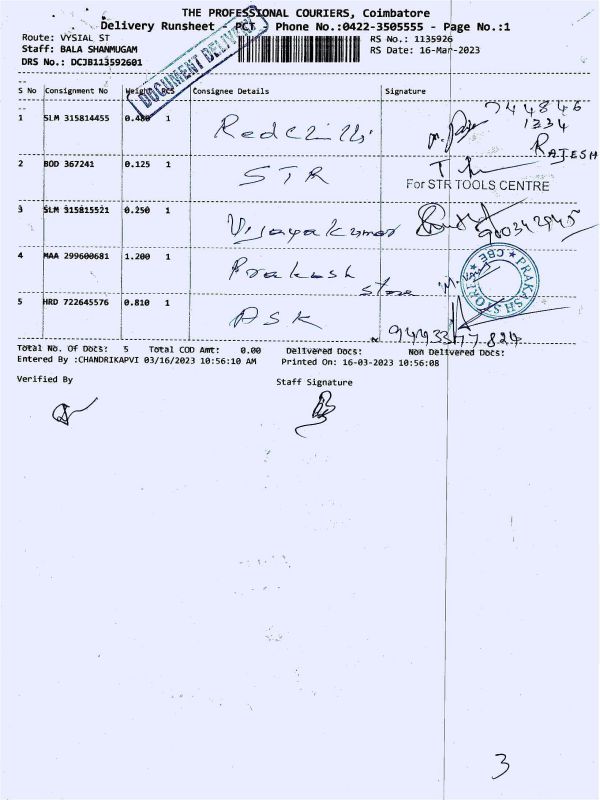 THE PROFESSIONAL COURIERS, Coimbatore
Delivery Runsheet - PCT - Phone No.:0422-3505555 - Page No.:1
Route: VYSIAL ST
RS No.: 1135926
Staff: BALA SHANMUGAM
RS Date: 16-Mar-2023
DRS No.: DCJB113592601
DOCUMENT DELIVERY
S No Consignment No Weight PCS Consignee Details Signature
1 SLM 315814455 0.480 1 Redchillis 744846
1234
RAJESH
2 BOD 367241 0.125 1 STR
For STR TOOLS CENTRE
3 SLM 315815521 0.250 1 Vijayakumar 900342945
4 MAA 299600681 1.200 1 Prakash
Store
PRAKASH STORES CBE
5 HRD 722645576 0.810 1 ASK
Total No. Of Docs: 5 Total COD Amt: 0.00 Delivered Docs: Non Delivered Docs:
Entered By :CHANDRIKAPVI 03/16/2023 10:56:10 AM Printed On: 16-03-2023 10:56:08
Verified By Staff Signature
3